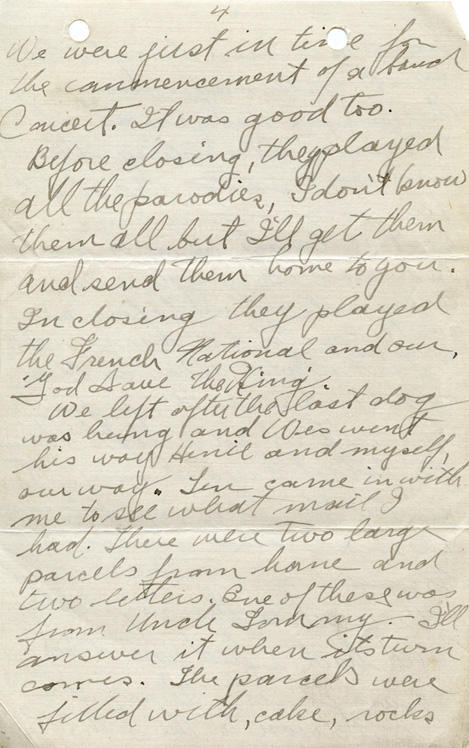 4
We were just in time for
the commencement of a band
Concert. It was good too.
Before closing, they played
all the parodies, I don't know
them all but I'll get them
and send them home to you.
In closing they played
the French National and our,
"God Save the King".
We left after the last dog
was hung and Wes went
his way and myself,
our way. came in with
me to see what mail I
had. There were two large
parcels from home and
two letters. One of these was
from Uncle Tommy. I'll
answer it when its turn
comes. The parcels were
filled with, cake, rocks